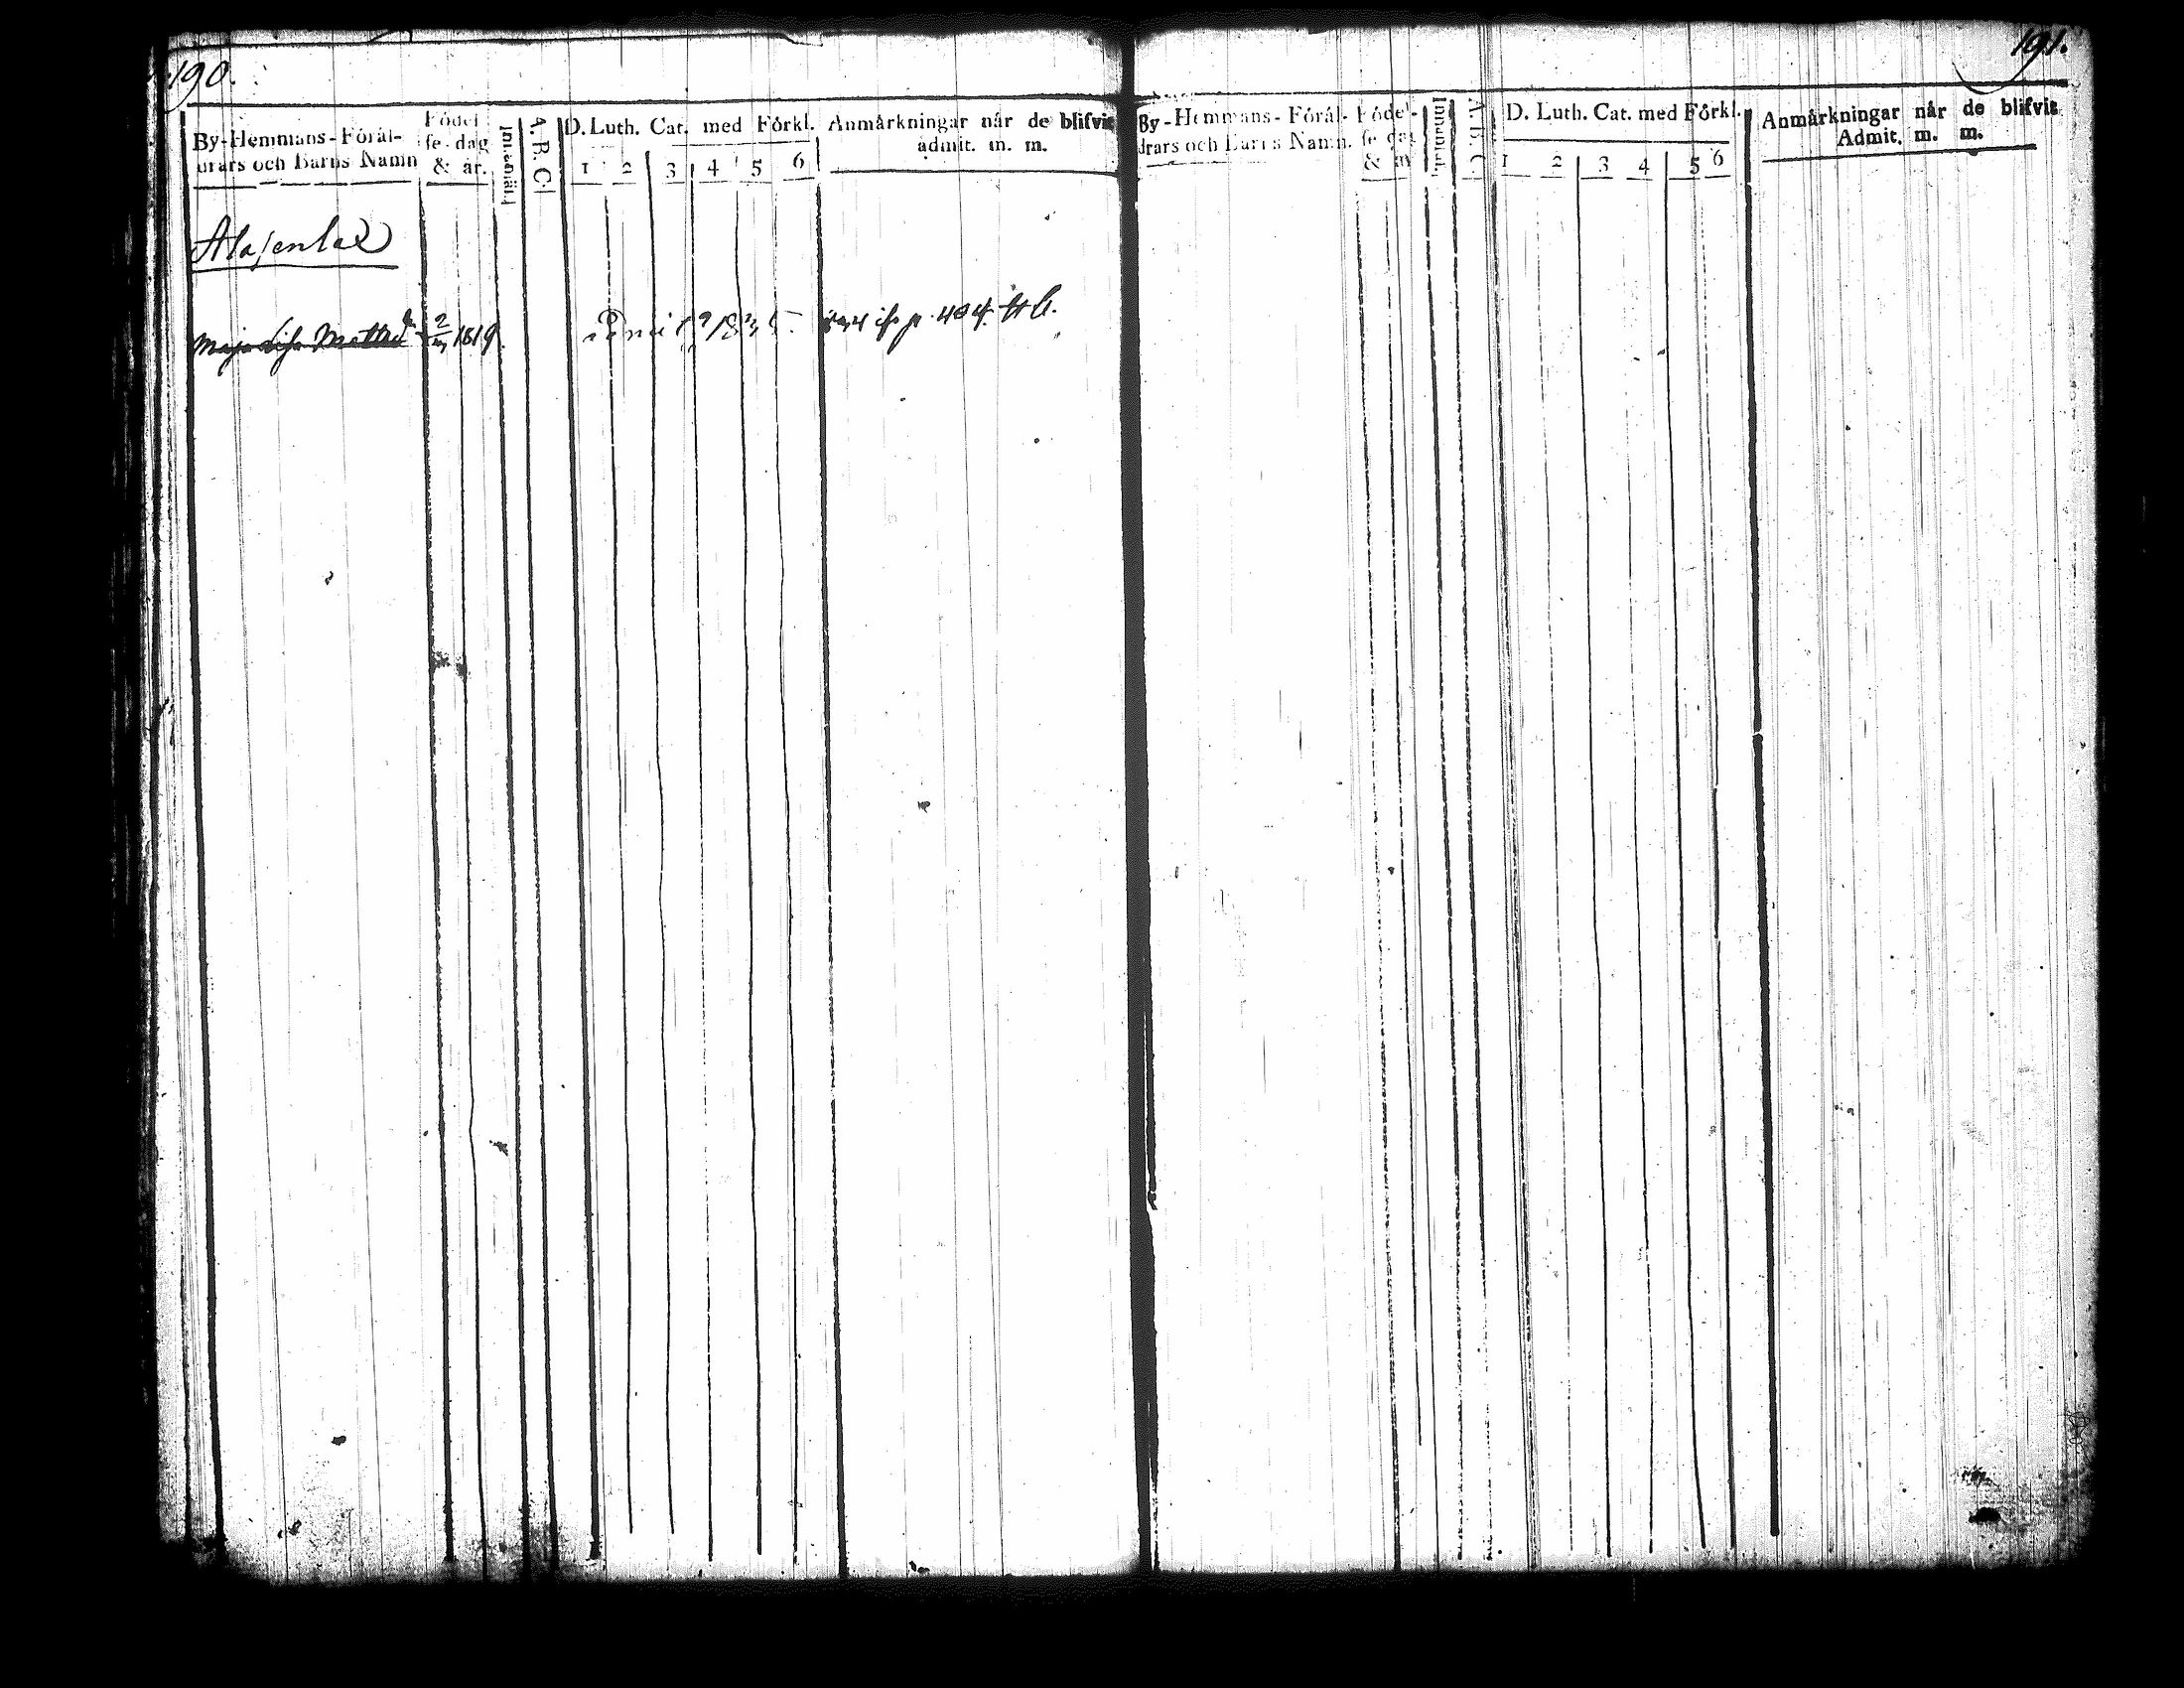 190.
By-Hemmans-Föräl-
drars och Barns Namn
Födel-
se-dag
& år.
Innanläs.
A. B. C.
D. Luth. Cat. med Förkl.
1 2 3 4 5 6
Anmärkningar når de blifvit
admit. m. m.
Alasenlax
Maja Lisa Mattsd 2 1819.
Admit 1835. p. 404.
191.
By-Hemmans-Förål-
drars och Barns Namn.
Födel-
se dag
&
Innanläs.
A. B. C.
D. Luth. Cat. med Förkl.
1 2 3 4 5 6
Anmärkningar når de blifvit
Admit. m. m.